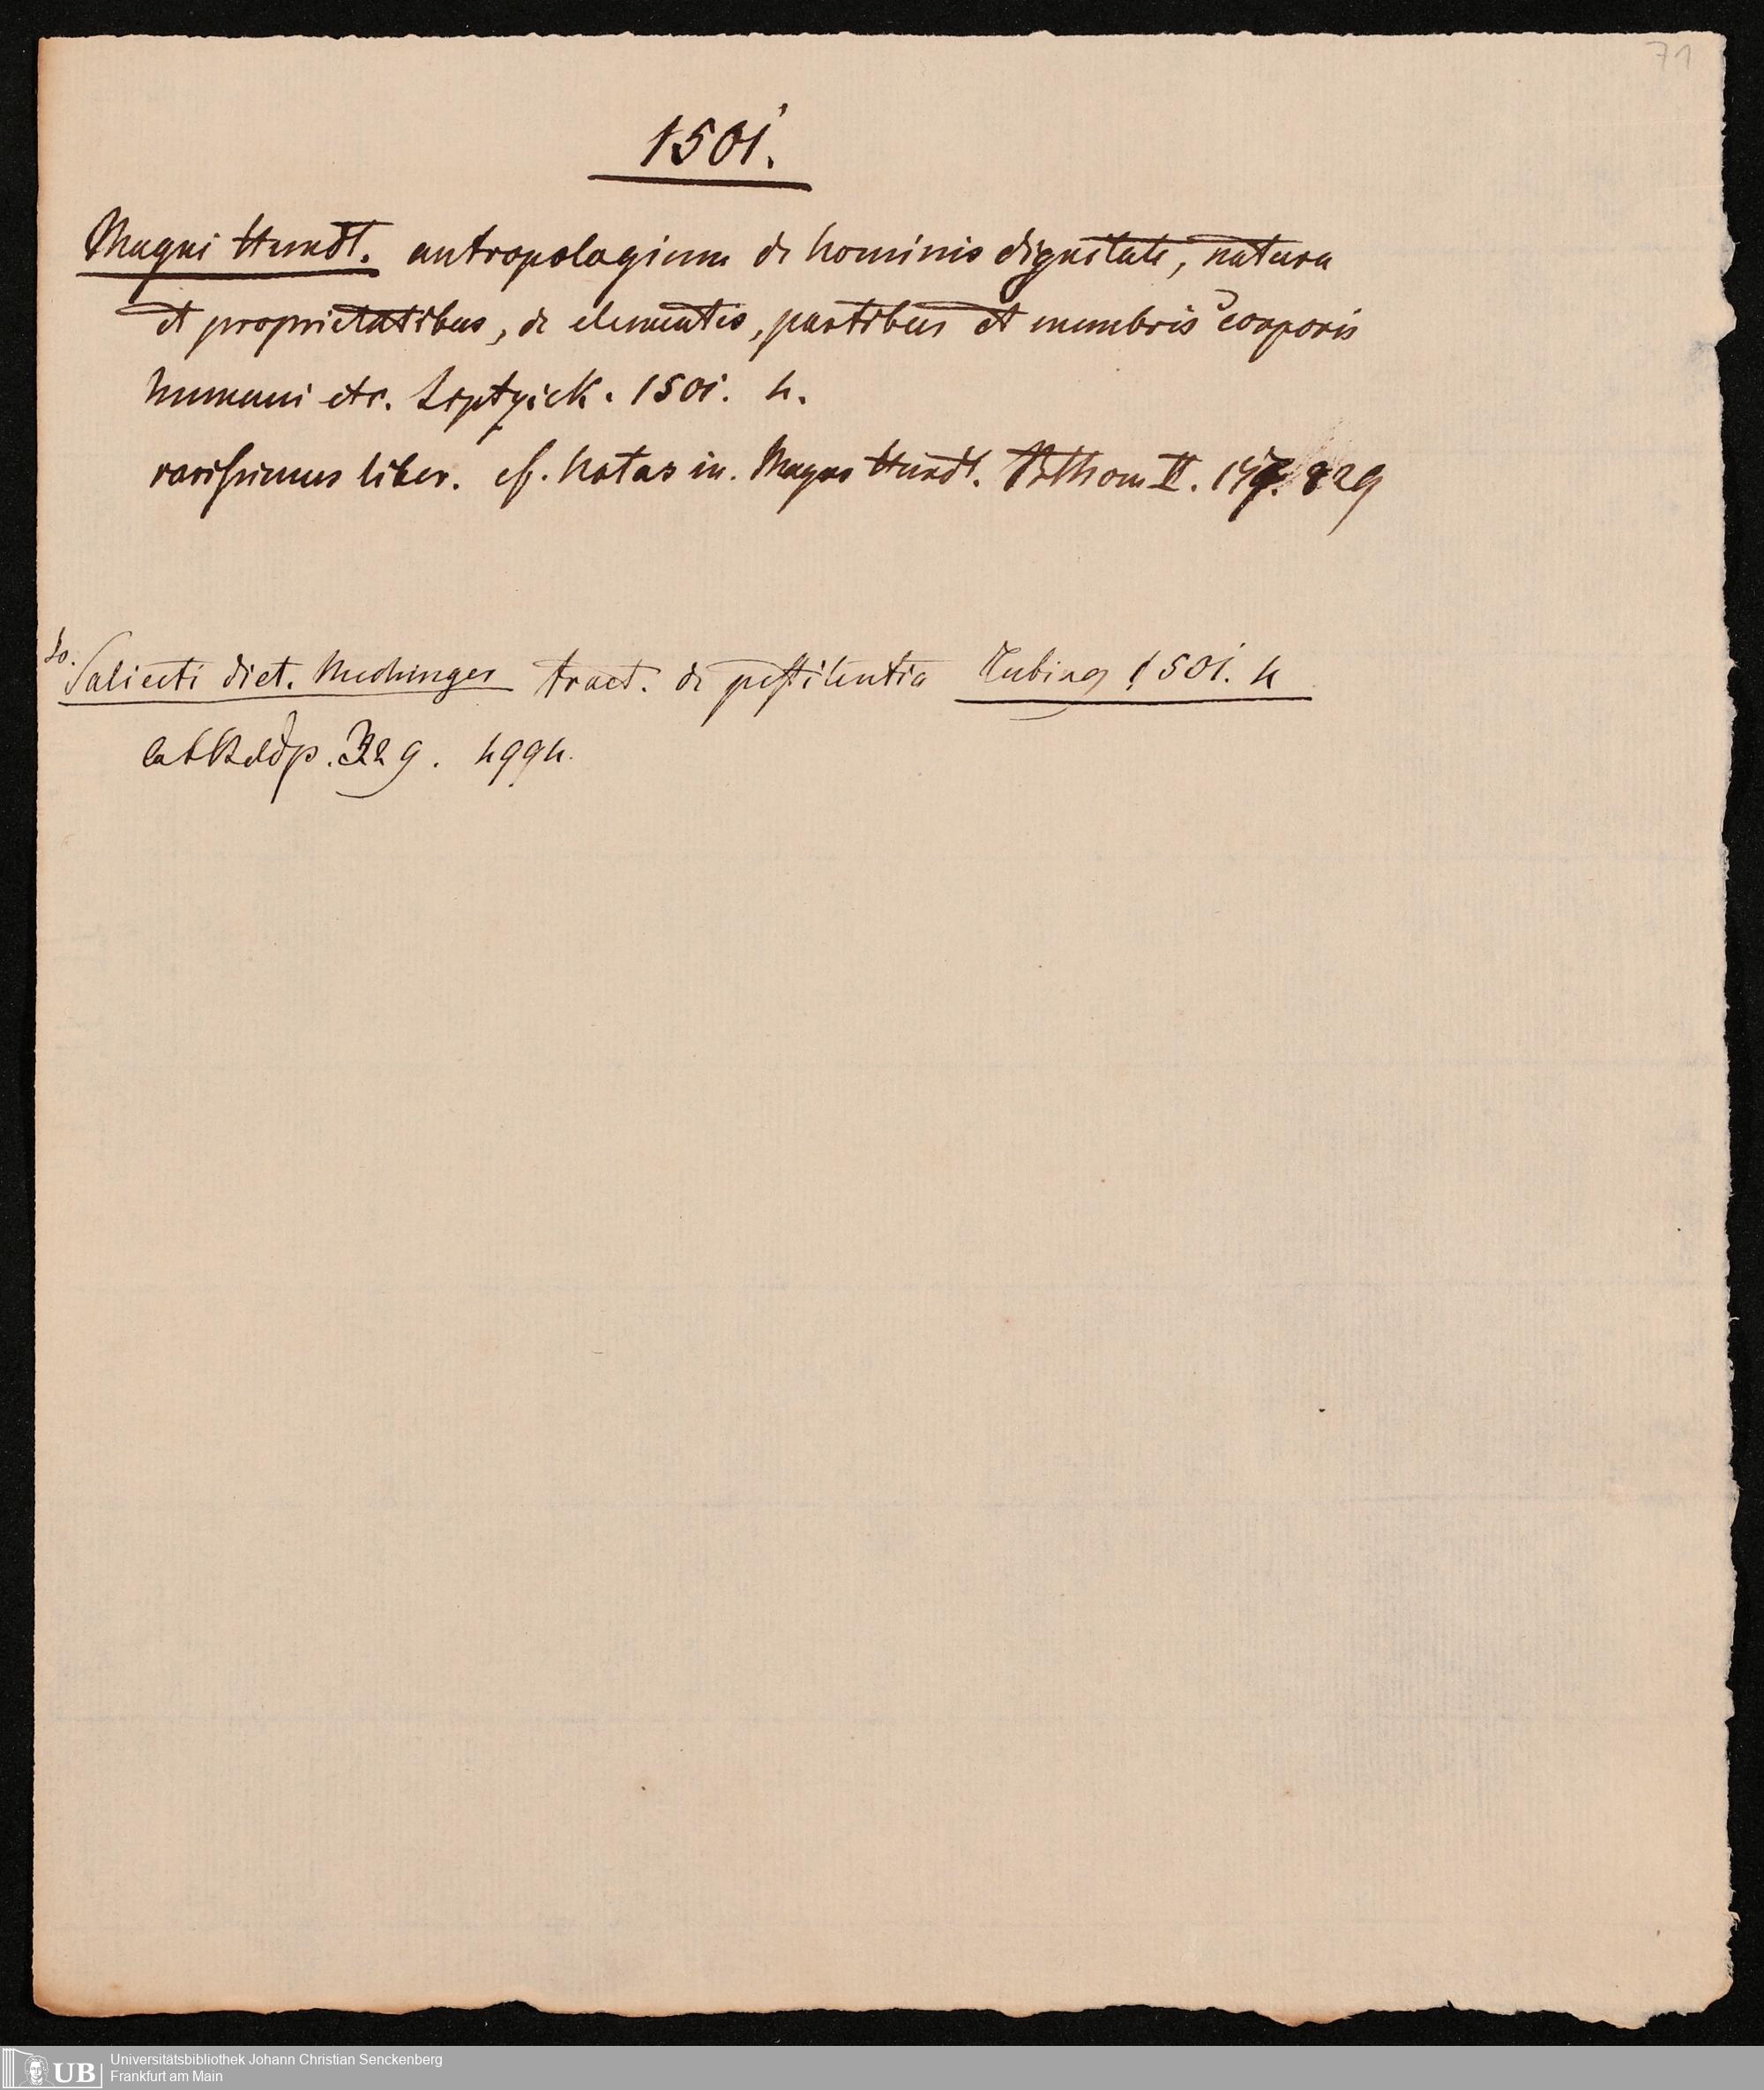 71
1501.
Magni Hundt. antropologium de hominis dignitate, natura
et proprietatibus, de elementis, partibus et membris corporis
humani etc. Liptzick. 1501. 4.
rarissimus liber. cf. Notas in. Magno Hundt. II. 829
Jo.
Saliceti dict. Mechinger tract. de pestilentia Tubing 1501. 4
p. 329. 4994.
UB
Universitätsbibliothek Johann Christian Senckenberg
Frankfurt am Main